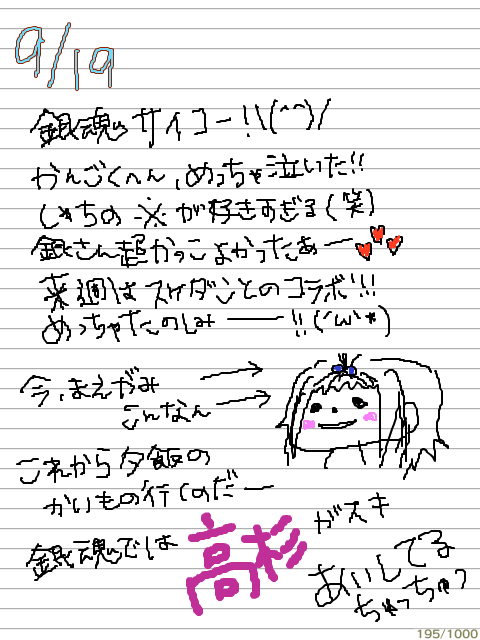 9/19
銀魂サイコー!!\(^^)/
かんごくへん、めっちゃ泣いた!!
じゃちの ※ が好きすぎる(笑)
銀さん超かっこよかったぁー
来週はスケダンとのコラボ!!!
めっちゃたのしみー!!(´ω`*)
今、まえがみ
こんなん
これから夕飯の
かいもの行くのだー
銀魂では
高杉
がスキ
あいしてる
ちゅっちゅっ
195/1000